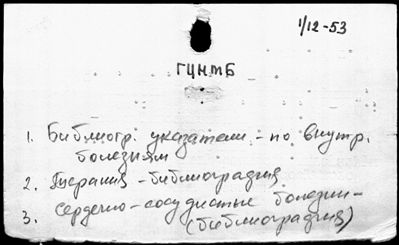 1/12-53
ГЦНМБ
1. Библиогр. указатели - по внутр.
болезням
2. Терапия - библиография
3. Сердечно-сосудистые болезни-
(библиография)